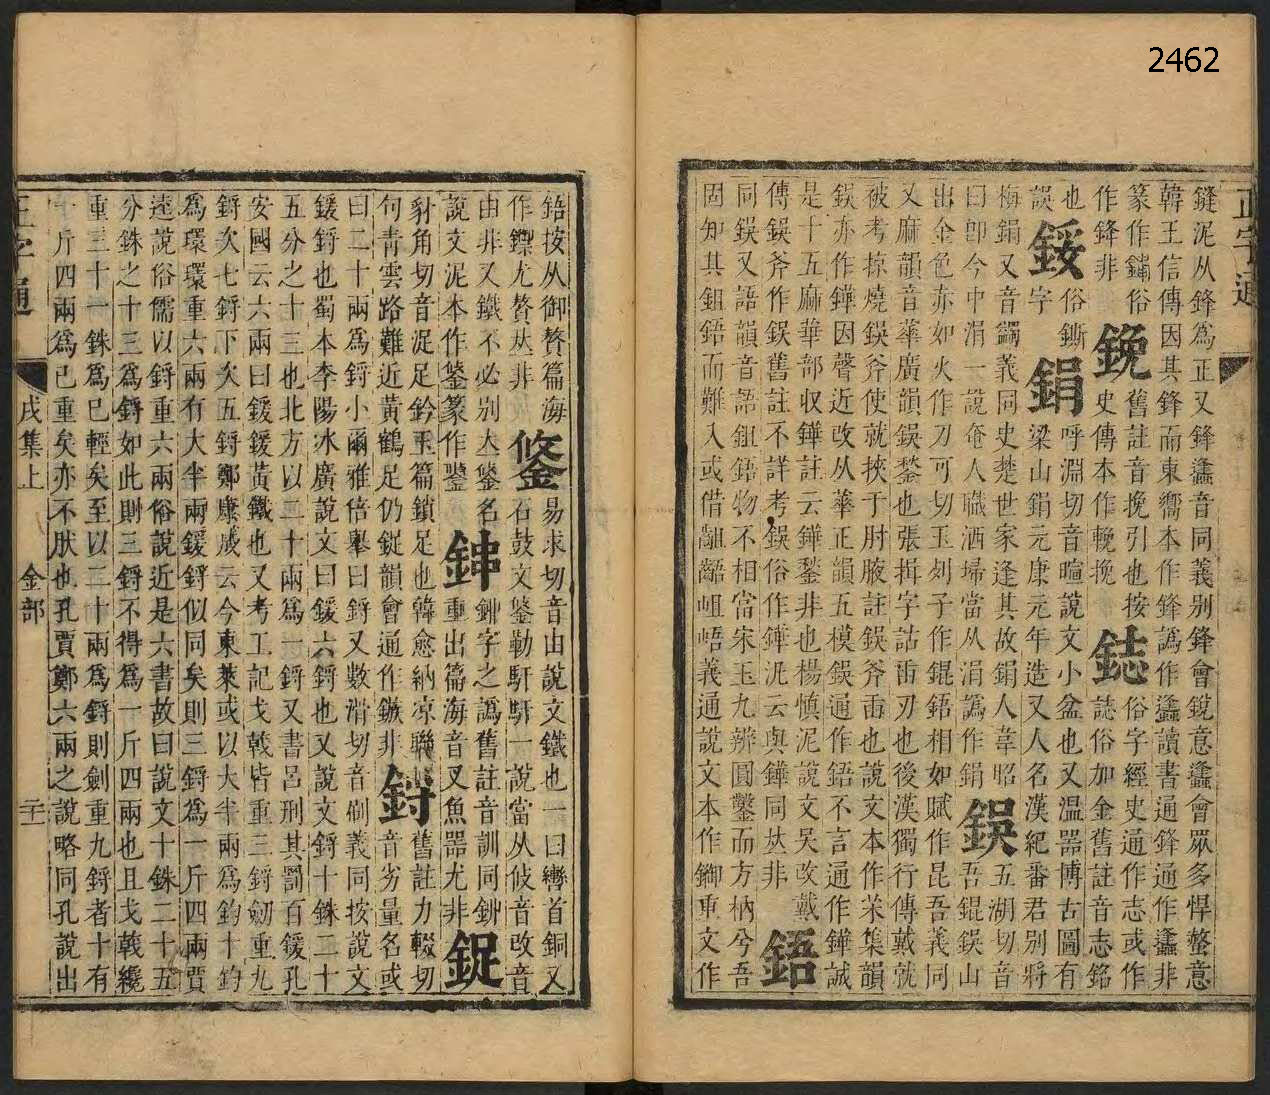 2462
正字通
鏠泥从鋒為正又鋒蠭音同義别鋒會銳意蠭會眾多悍螫意
韓王信傳因其鋒而東嚮本作鋒譌作蠭讀書通鋒通作蠭非
篆作鏽俗作鋒非
鋔舊註音挽引也按史傳本作輓挽
鋕俗字經史通作志或作誌俗加金舊註音志銘也
鋖俗鐁字
鋗呼淵切音暄說文小盆也又溫器博古圖有梁山鋗元康元年造又人名漢紀番君别將梅鋗又音蠲義同史楚世家逢其故鋗人韋昭曰卽今中涓一說奄人職洒埽當从涓譌作鋗
鋘五湖切音吾錕鋘山出金色亦如火作刀可切玉列子作錕鋙相如賦作昆吾義同
又麻韻音華廣韻鋘鍫也張揖字詁臿刃也後漢獨行傳戴就
被考掠燒鋘斧使就挾于肘腋註鋘斧臿也說文本作芣集韻
鋘亦作鏵因聲近改从華正韻五模鋘通作鋙不言通作鏵誠
是十五麻華部収鏵註云鏵鍫非也楊慎泥說文吴改戴
傳鋘斧作鋘舊註不詳考鋘俗作鋘泥云與鏵同𠀤非
鋙同鋘又語韻音語鉏鋙物不相當宋玉九辨圜鑿而方枘兮吾
固知其鉏鋙而難入或借齟齬岨峿義通說文本作鋤重文作
鋙按从御贅篇海作鏍尤贅𠀤非
鋚易求切音由說文鐵也一曰轡首銅又石鼓文鋚勒馯馯一說當从攸音攸改音
由非又鐵不必别大鋚名說文泥本作鋚篆作鑒
鉮鉚字之譌舊註音訓同鉚重出篇海音叉魚器尤非
鋜豺角切音浞足鈴玉篇鎖足也韓愈納凉聯
句青雲路難近黃鶴足仍鋜韻會通作鏃非
鋝舊註力輟切音劣量名或
曰二十兩為鋝小爾雅倍舉曰鋝又數滑切音刷義同按說文
鍰鋝也蜀本李陽冰廣說文曰鍰六鋝也又說文鋝十銖二十
五分之十三也北方以二十兩為一鋝又書呂刑其罰百鍰孔
安國云六兩曰鍰鍰黃鐵也又考工記戈戟皆重三鋝劒重九
鋝次七鋝下次五鋝鄭康成云今東萊或以大半兩為鈞十鈞
為環環重六兩有大半兩鍰鋝似同矣則三鋝為一斤四兩賈
逵說俗儒以鋝重六兩俗說近是六書故曰說文十銖二十五
分銖之十三為鋝如此則三鋝不得為一斤四兩也且戈戟纔
重三十一銖為已輕矣至以二十兩為鋝則劍重九鋝者十有
一斤四兩為已重矣亦不肰也孔賈鄭六兩之說略同孔說出
正字通
戌集上
金部
二十